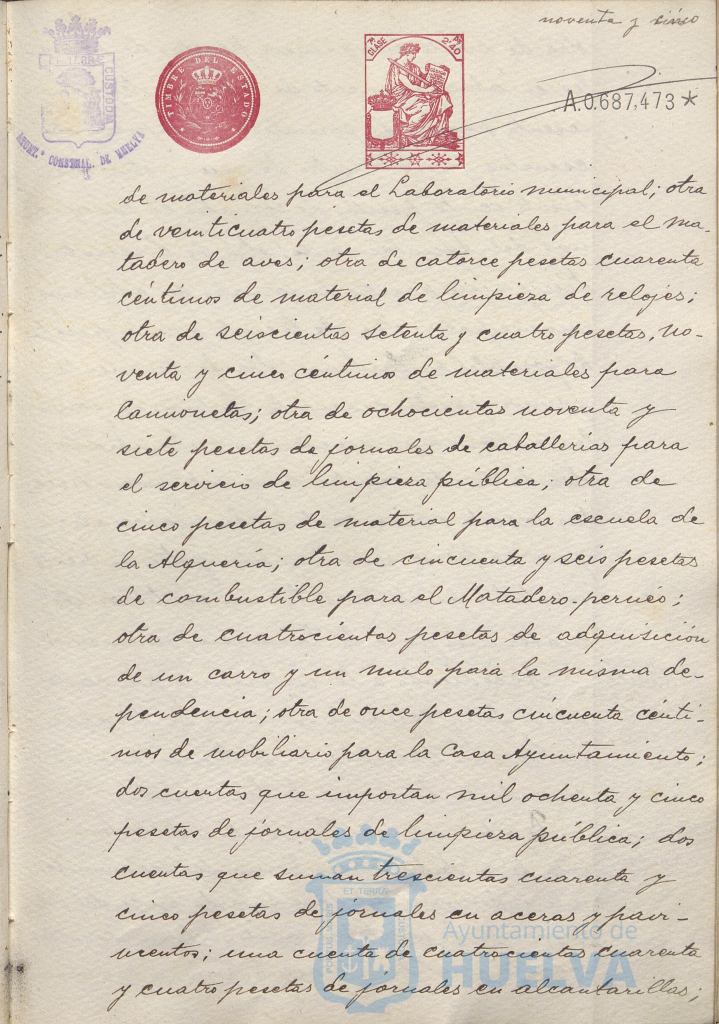 noventa y cinco
TIMBRE DEL ESTADO
CLASE 7ª
2'40
A.0.687,473*
CUSTODIA
AYUNT.º CONSTNAL. DE HUELVA
de materiales para el Laboratorio municipal; otra
de veinticuatro pesetas de materiales para el ma-
tadero de aves; otra de catorce pesetas cuarenta
céntimos de material de limpieza de relojes;
otra de seiscientas setenta y cuatro pesetas, no-
venta y cinco céntimos de materiales para
camionetas; otra de ochocientas noventa y
siete pesetas de jornales de caballerías para
el servicio de limpieza pública; otra de
cinco pesetas de material para la escuela de
la Alquería; otra de cincuenta y seis pesetas
de combustible para el Matadero-pernéo;
otra de cuatrocientas pesetas de adquisición
de un carro y un mulo para la misma de-
pendencia; otra de once pesetas cincuenta cénti-
mos de mobiliario para la Casa Ayuntamiento;
dos cuentas que importan mil ochenta y cinco
pesetas de jornales de limpieza pública; dos
cuentas que suman trescientas cuarenta y
cinco pesetas de jornales en aceras y pavi-
mentos; una cuenta de cuatrocientas cuarenta
y cuatro pesetas de jornales en alcantarillas;
ET TERRA
Ayuntamiento de
HUELVA